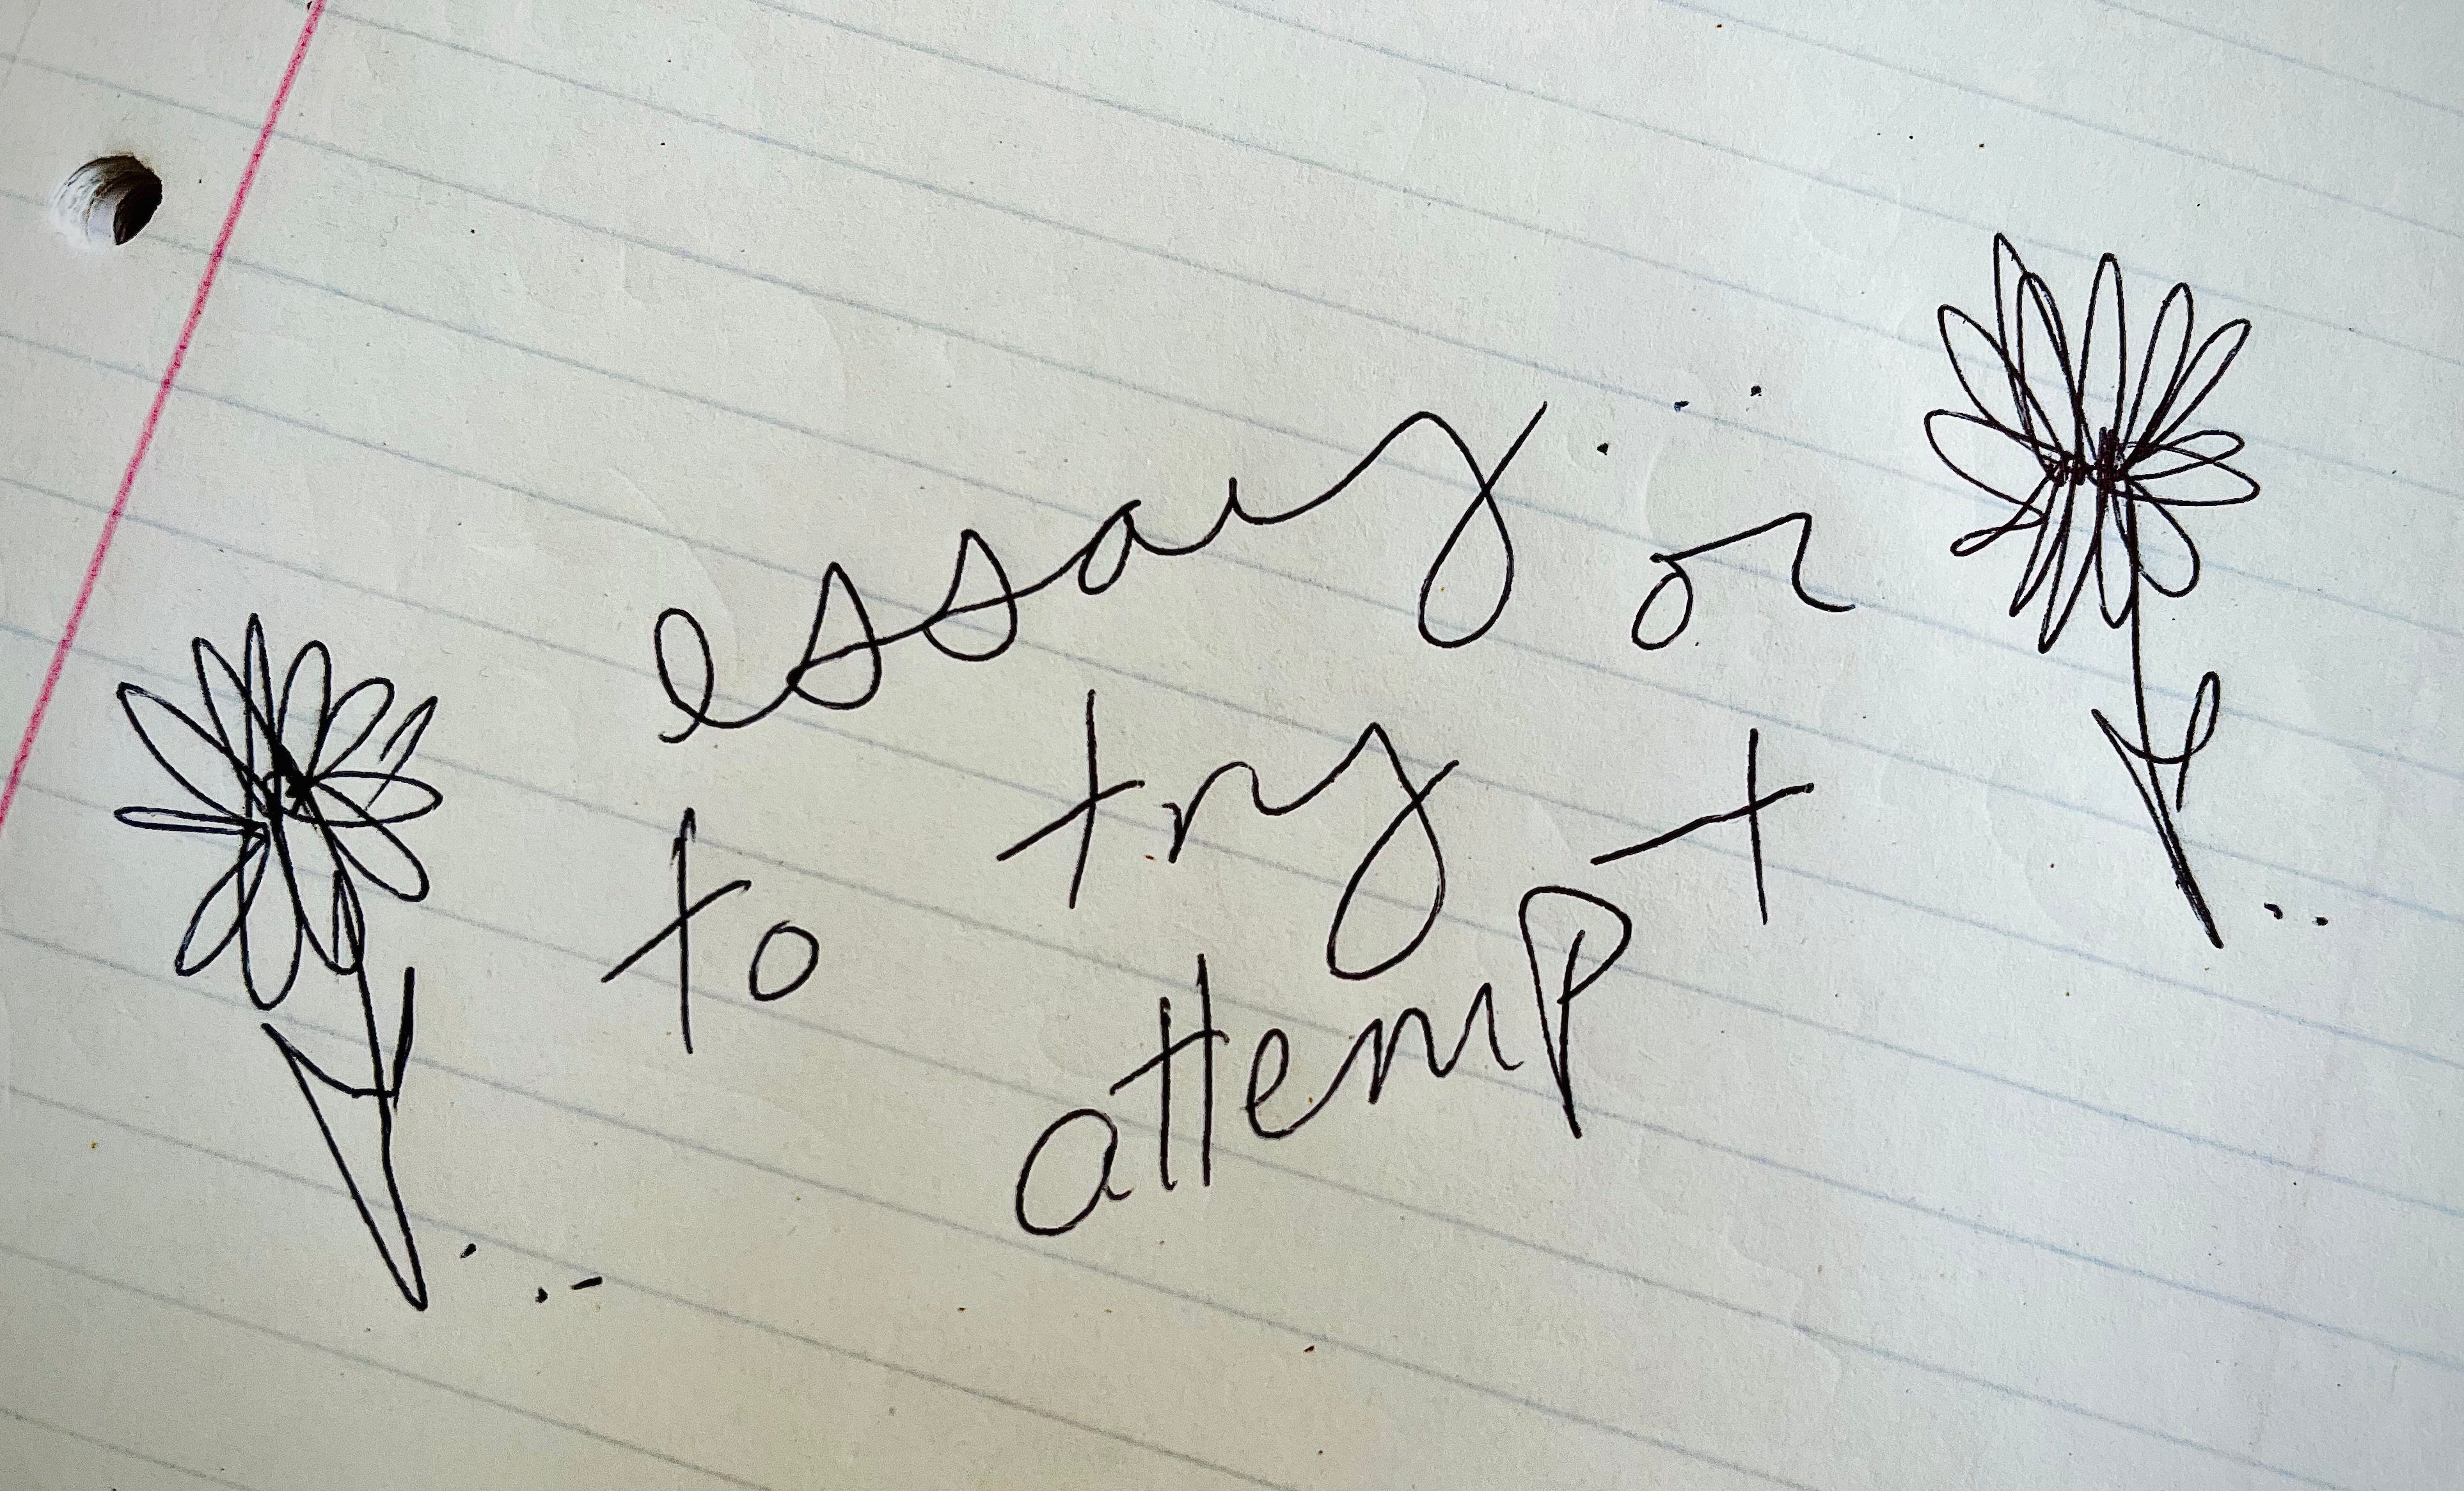 essay... or
to try
attempt